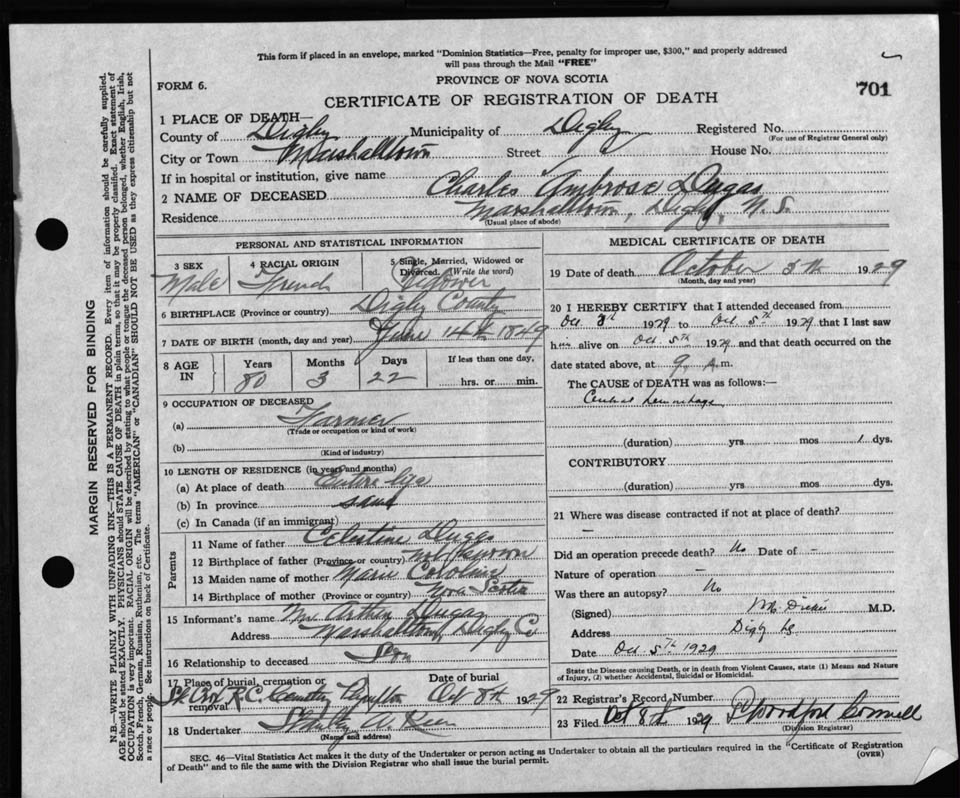 This form if placed in an envelope, marked "Dominion Statistics—Free, penalty for improper use, $300," and properly addressed
will pass through the Mail "FREE"
FORM 6.
PROVINCE OF NOVA SCOTIA
701
CERTIFICATE OF REGISTRATION OF DEATH
1 PLACE OF DEATH—
County of Digby Municipality of Digby Registered No.
(For use of Registrar General only)
City or Town Marshalltown Street House No.
If in hospital or institution, give name
2 NAME OF DECEASED Charles Ambrose Dugas
Residence Marshalltown, Digby, N.S.
(Usual place of abode)
PERSONAL AND STATISTICAL INFORMATION
3 SEX Male
4 RACIAL ORIGIN French
5 Single, Married, Widowed or
Divorced. (Write the word)
Widower
6 BIRTHPLACE (Province or country) Digby County
7 DATE OF BIRTH (month, day and year) June 14th 1849
8 AGE IN
Years 80
Months 3
Days 22
If less than one day,
hrs. or min.
9 OCCUPATION OF DECEASED
(a) Farmer
(Trade or occupation or kind of work)
(b)
(Kind of industry)
10 LENGTH OF RESIDENCE (in years and months)
(a) At place of death Entire life
(b) In province same
(c) In Canada (if an immigrant)
Parents
11 Name of father Celestine Dugas
12 Birthplace of father (Province or country) not known
13 Maiden name of mother Marie
14 Birthplace of mother (Province or country) Nova Scotia
15 Informant's name Mr Arthur Dugas
Address Marshalltown, Digby Co
16 Relationship to deceased Son
17 Place of burial, cremation or
removal R.C. Cemetery Plympton
Date of burial
Oct 8th 1929
18 Undertaker
(Name and address)
MEDICAL CERTIFICATE OF DEATH
19 Date of death October 5th 1929
(Month, day and year)
20 I HEREBY CERTIFY that I attended deceased from
Oct 1929 to Oct 5th 1929 that I last saw
him alive on Oct 5th 1929 and that death occurred on the
date stated above, at 9 A.m.
The CAUSE of DEATH was as follows:—
hemorrhage
(duration) yrs mos 1 dys.
CONTRIBUTORY
(duration) yrs mos dys.
21 Where was disease contracted if not at place of death?
—
Did an operation precede death? No Date of —
Nature of operation —
Was there an autopsy? No
(Signed) M.D.
Address Digby
Date Oct 5th 1929
State the Disease causing Death, or in death from Violent Causes, state (1) Means and Nature
of Injury, (2) whether Accidental, Suicidal or Homicidal.
22 Registrar's Record Number
23 Filed Oct 8th 1929
(Division Registrar)
SEC. 46—Vital Statistics Act makes it the duty of the Undertaker or person acting as Undertaker to obtain all the particulars required in the "Certificate of Registration
of Death" and to file the same with the Division Registrar who shall issue the burial permit.
(OVER)
MARGIN RESERVED FOR BINDING
N.B.—WRITE PLAINLY WITH UNFADING INK—THIS IS A PERMANENT RECORD. Every item of information should be carefully supplied.
AGE should be stated EXACTLY. PHYSICIANS should STATE CAUSE OF DEATH in plain terms, so that it may be properly classified. Exact statement of
OCCUPATION is very important. RACIAL ORIGIN will be described by stating to what people or tongue the deceased person belonged, whether English, Irish,
Scotch, French, German, Russian, Ruthenian, etc. The terms "AMERICAN" or "CANADIAN" SHOULD NOT BE USED as they express citizenship but not
a race or people. See instructions on back of Certificate.